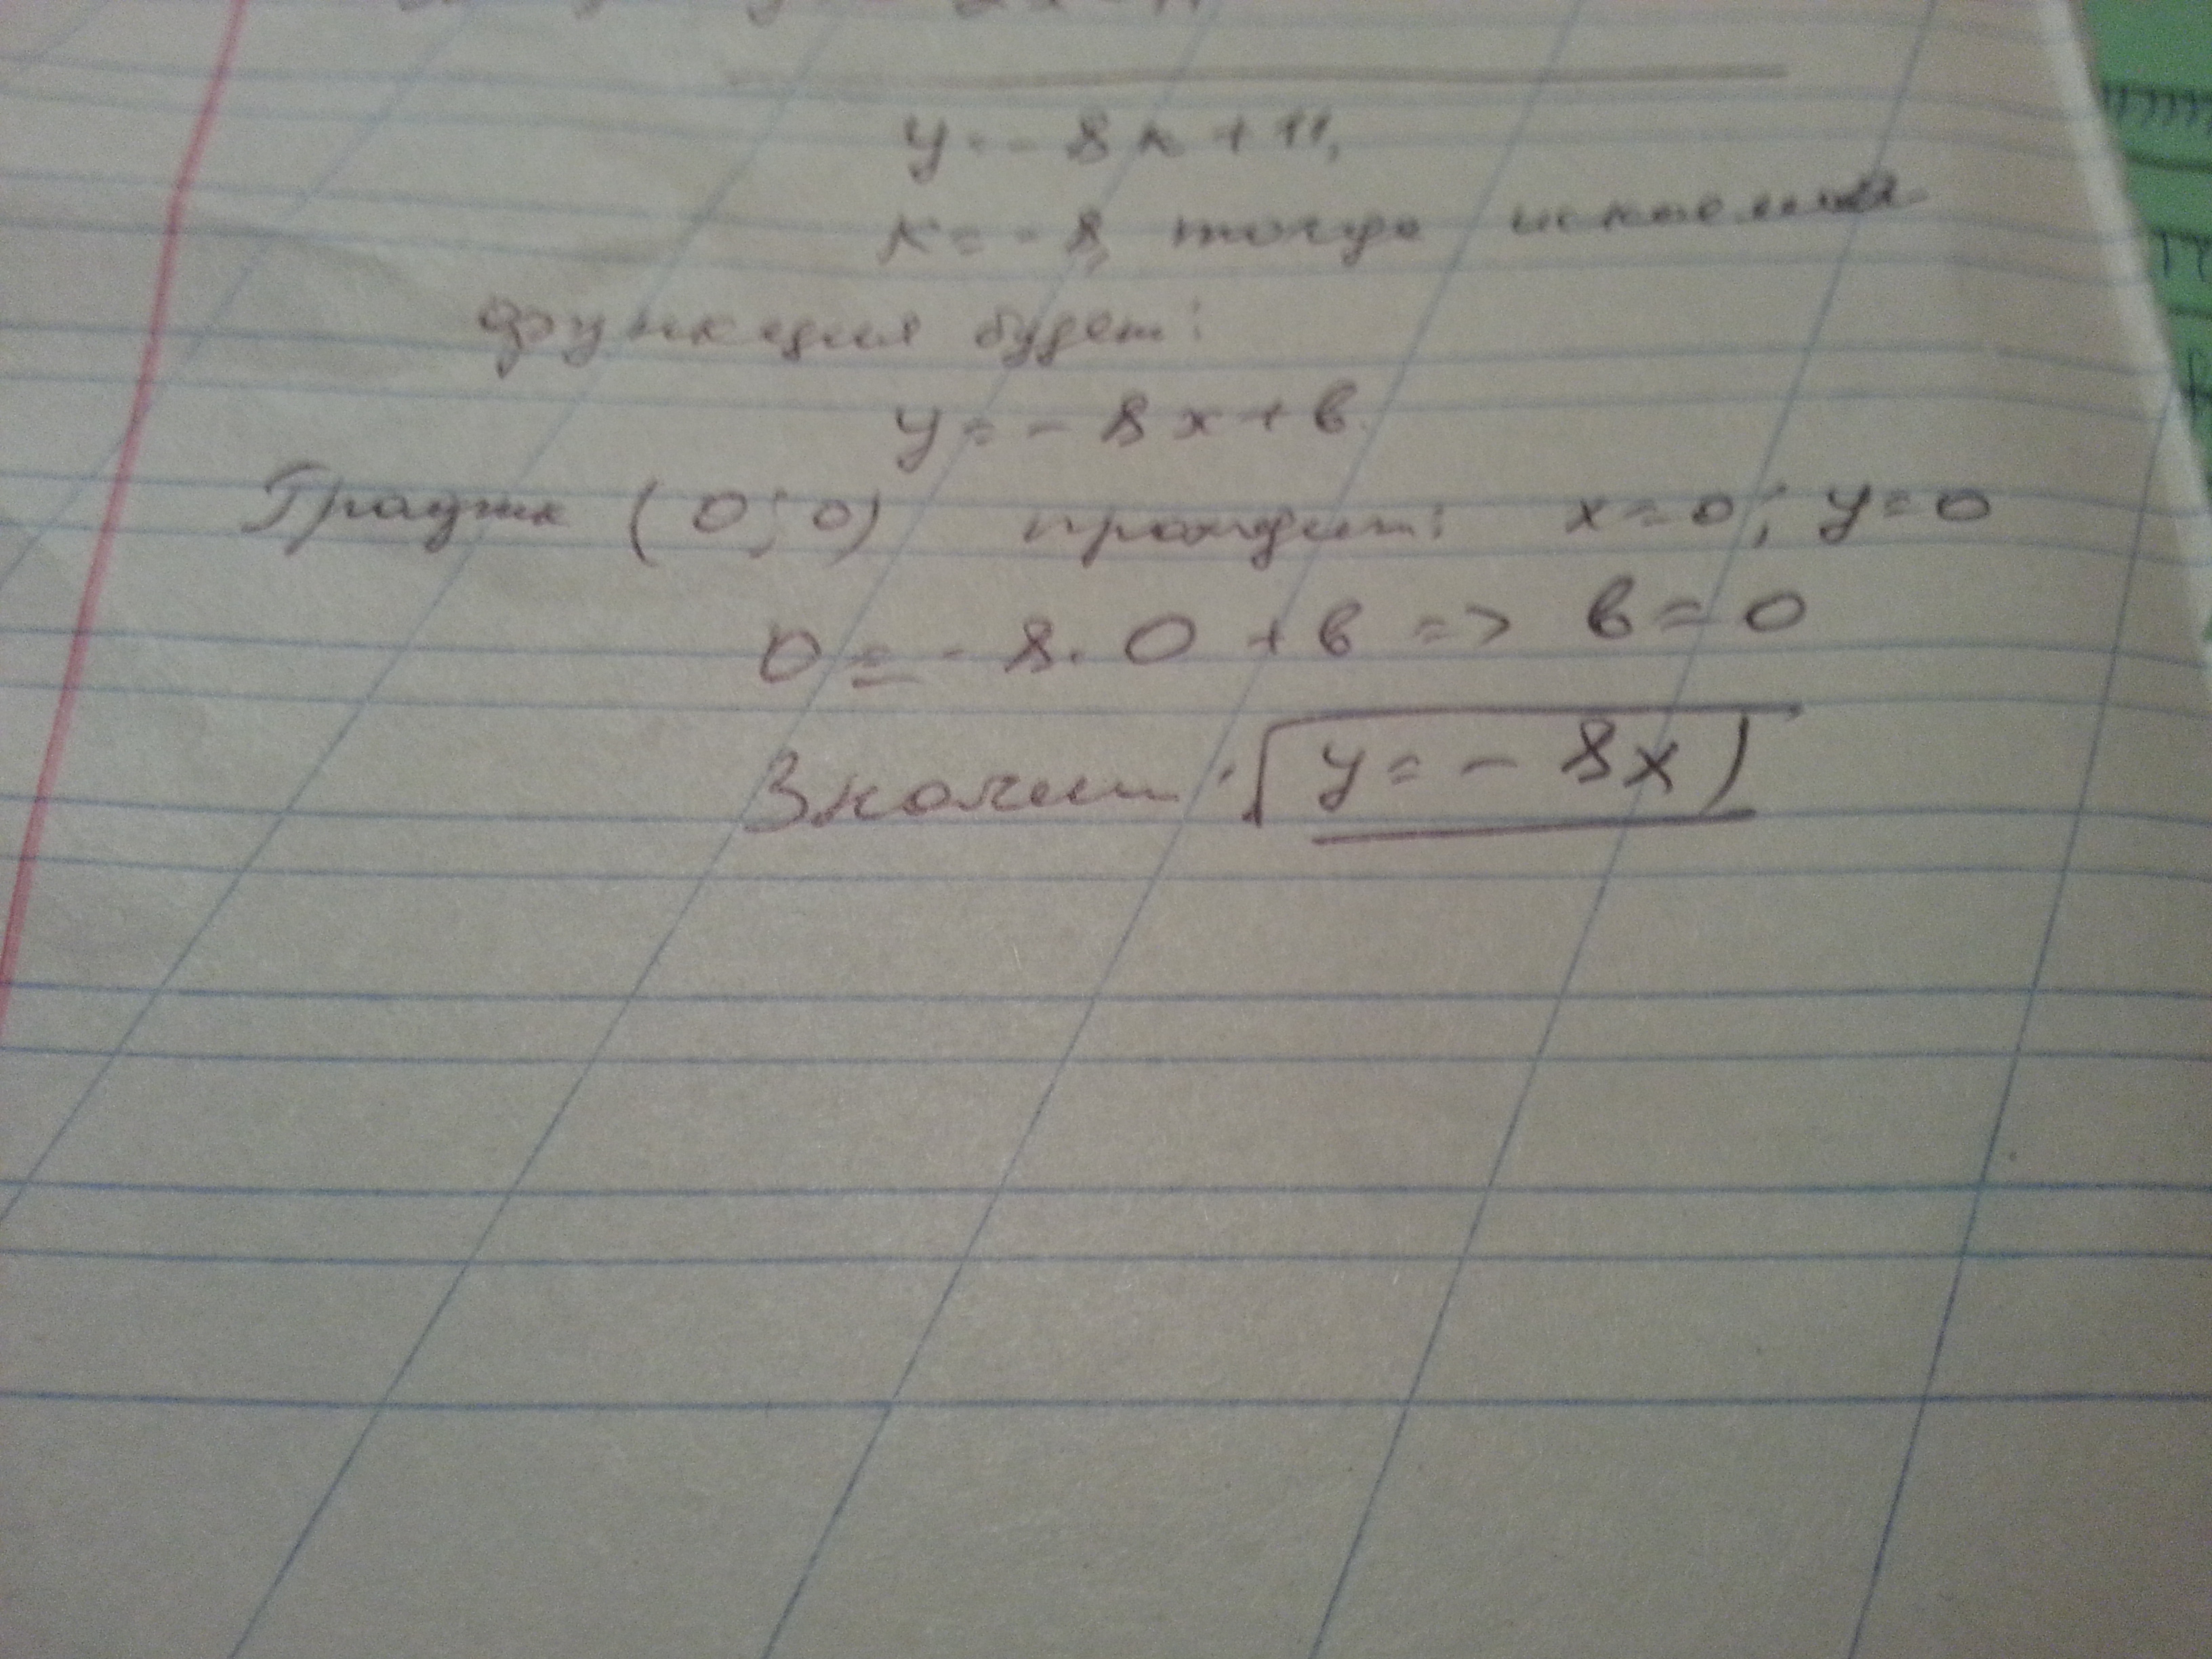 y = - 8x + 11,
к = - 8, тогда искомая
функция будет:
y = - 8x + в.
График (0; 0) проходит: x = 0; y = 0
0 = - 8 · 0 + в => в = 0
Значит: y = - 8x